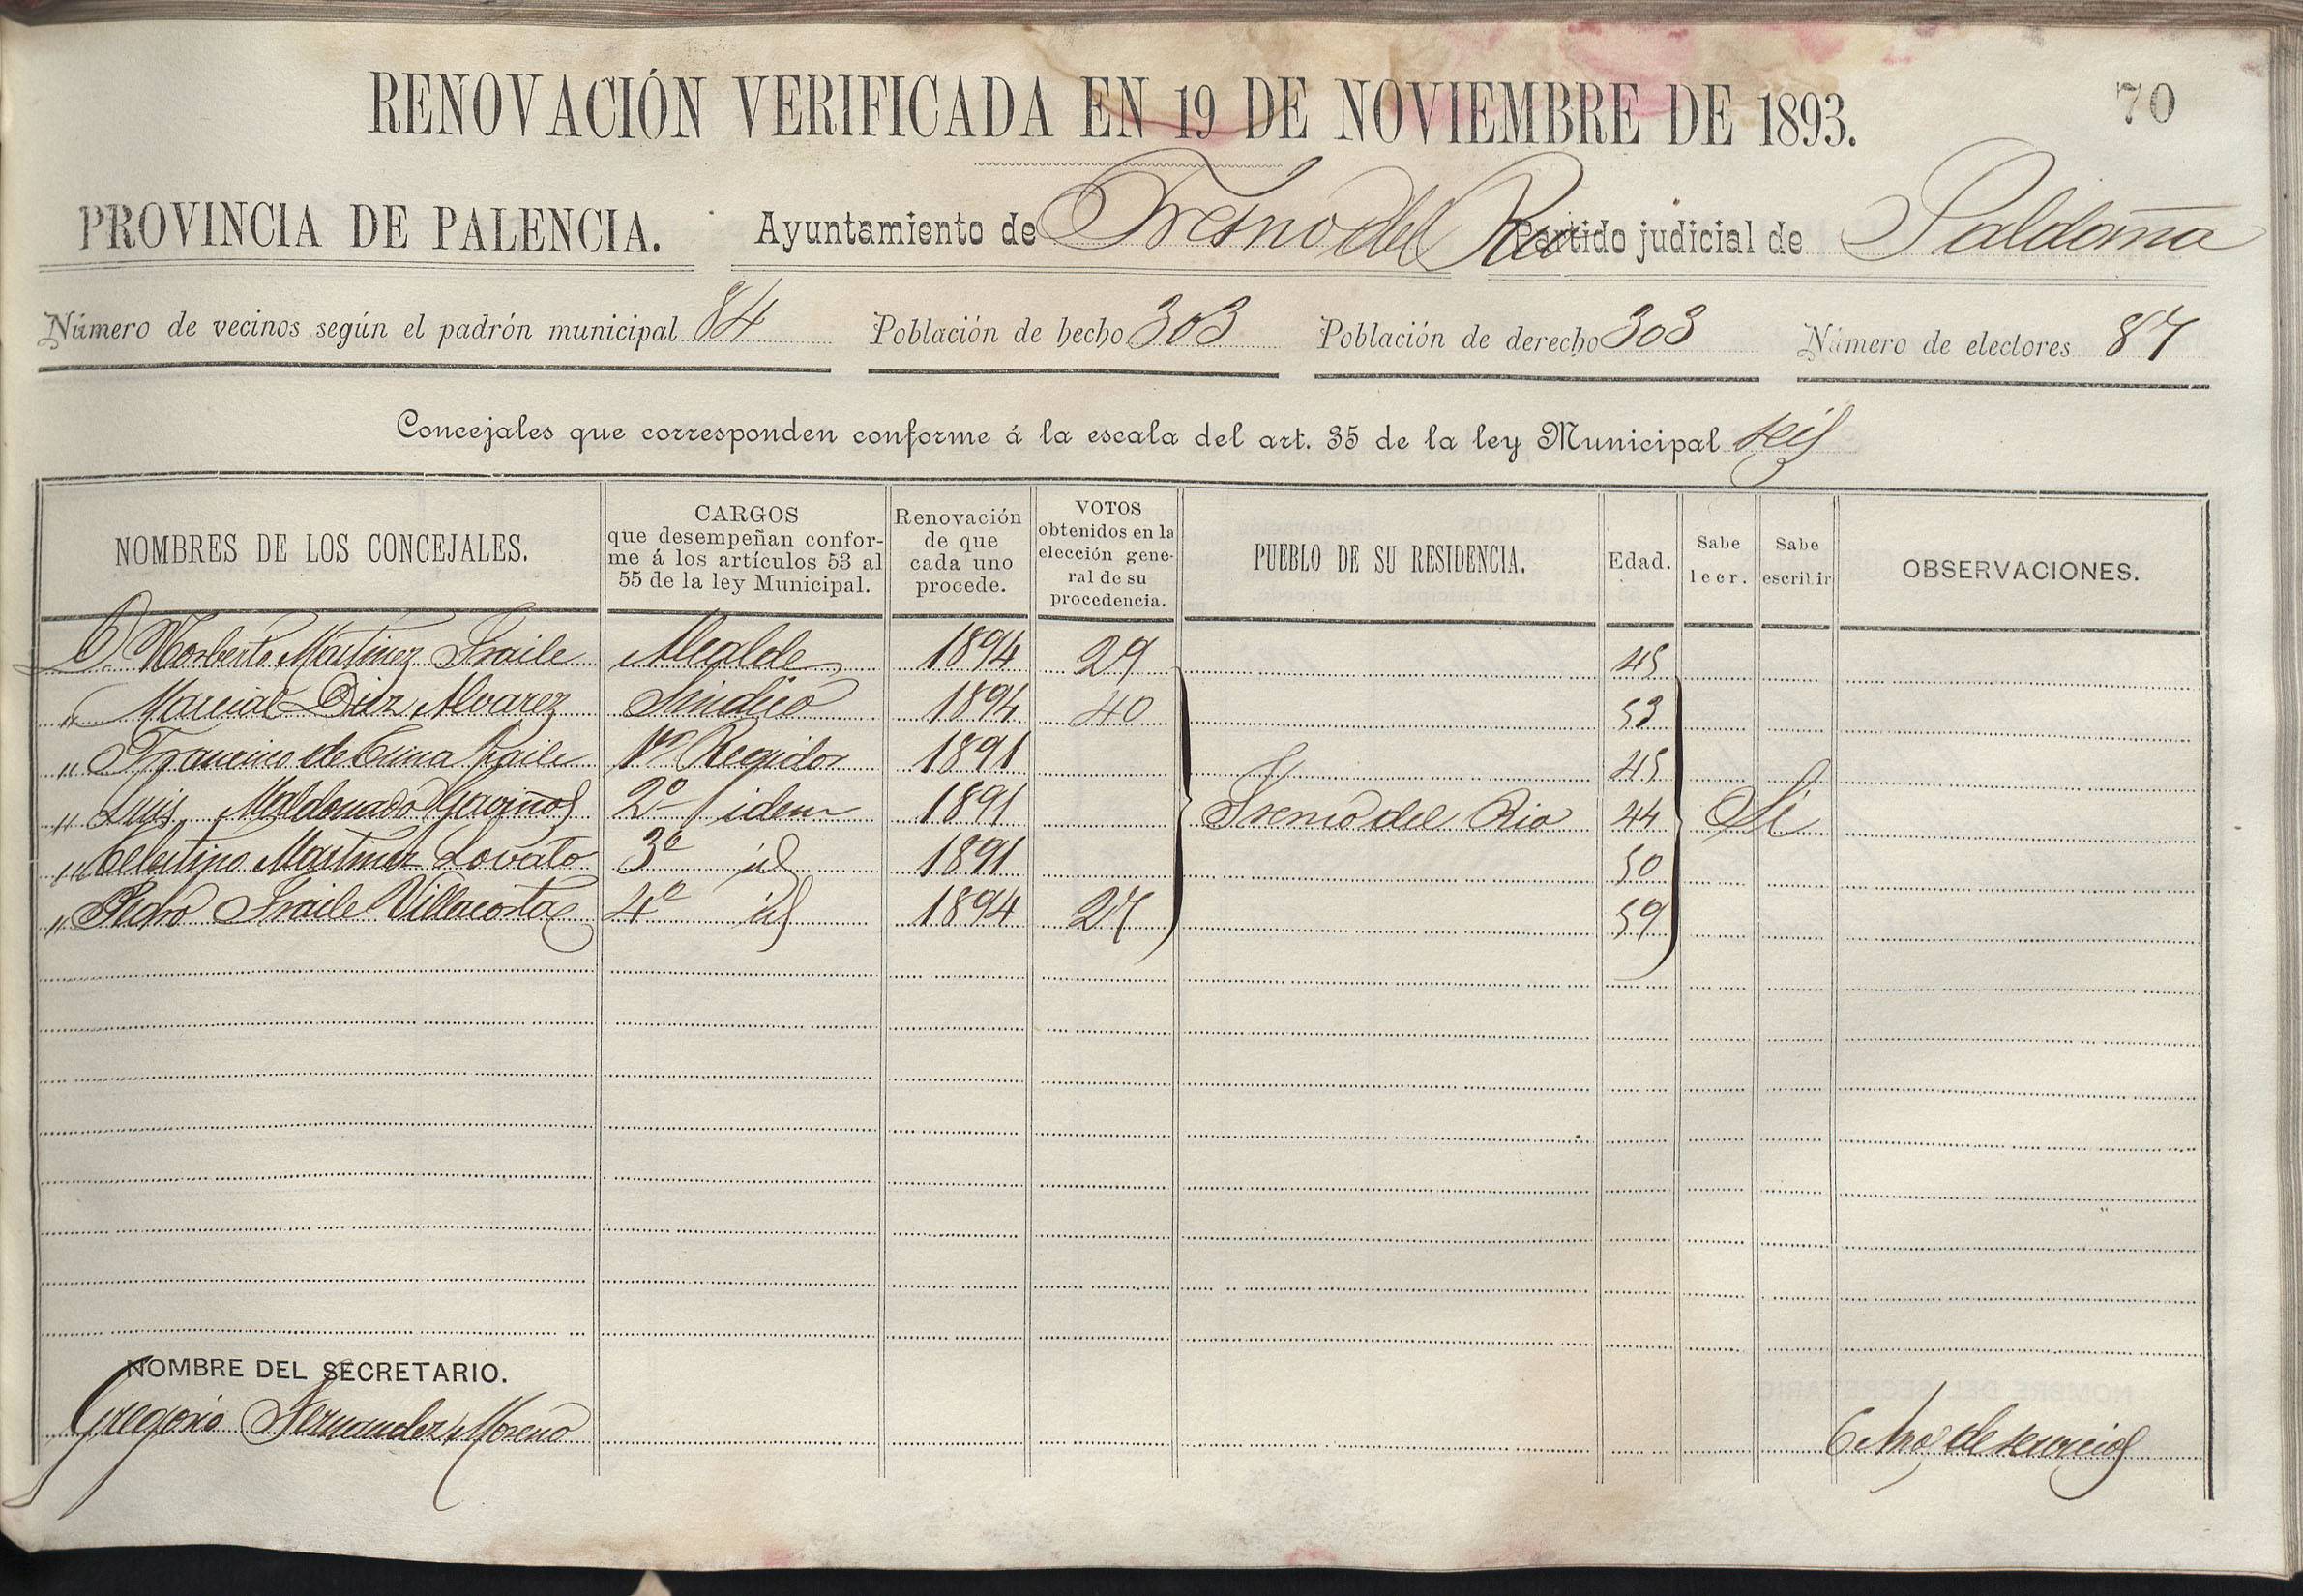 RENOVACIÓN VERIFICADA EN 19 DE NOVIEMBRE DE 1893. 70
PROVINCIA DE PALENCIA. Ayuntamiento de Fresno del Rio Partido judicial de Saldaña
Número de vecinos según el padrón municipal 84 Población de hecho 303 Población de derecho 303 Número de electores 87
Concejales que corresponden conforme á la escala del art. 35 de la ley Municipal seis
NOMBRES DE LOS CONCEJALES.
CARGOS
que desempeñan confor-
me á los artículos 53 al
55 de la ley Municipal.
Renovación
de que
cada uno
procede.
VOTOS
obtenidos en la
elección gene-
ral de su
procedencia.
PUEBLO DE SU RESIDENCIA.
Edad.
Sabe
leer.
Sabe
escribir
OBSERVACIONES.
D. Norberto Martinez Fraile Alcalde 1894 29 45
" Marcial Diez Alvarez Sindico 1894 40 53
" Francisco de Fraile 1er Regidor 1891 45
" Luis Maldonado 2º idem 1891 Fresno del Rio 44 Si
" Celestino Martinez Lovato 3º id 1891 50
" Pedro Fraile Villacorta 4º id 1894 27 59
NOMBRE DEL SECRETARIO.
Gregorio Fernandez Moreno 6 Años de servicios